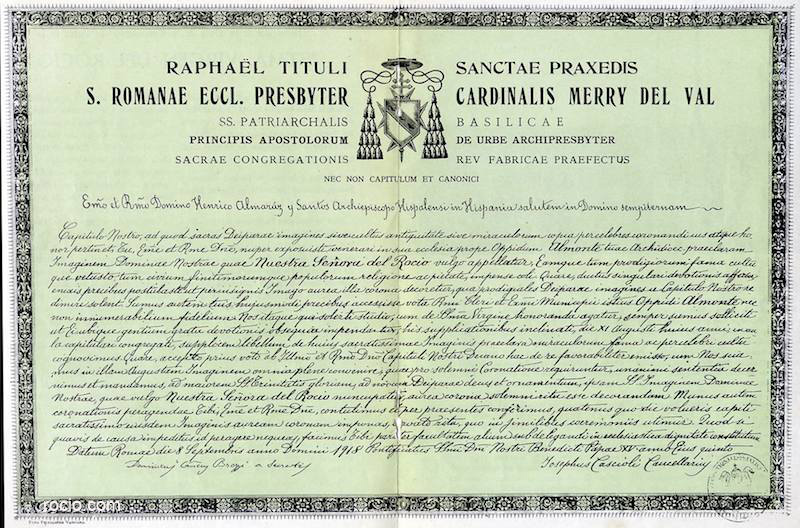 RAPHAËL TITULI SANCTAE PRAXEDIS
S. ROMANAE ECCL. PRESBYTER CARDINALIS MERRY DEL VAL
SS. PATRIARCHALIS BASILICAE
PRINCIPIS APOSTOLORUM DE URBE ARCHIPRESBYTER
SACRAE CONGREGATIONIS REV FABRICAE PRAEFECTUS
NEC NON CAPITULUM ET CANONICI
Emo et Rmo Domino Henrico Almaráz y Santos Archiepiscopo Hispalensi in Hispania salutem in Domino sempiternam
Capitulo Nostro, ad quod sacras Deiparae imagines sive cultus antiquitate sive miraculorum copia percelebres coronandi ius atque ho
nor pertinet, Tu, Eme et Rme Dne, nuper exposuisti venerari in sua ecclesia prope Oppidum Almonte tuae Archidioec praeclaram
Imaginem Dominae Nostrae quae Nuestra Señora del Rocio vulgo appellatur, Eamque tum prodigiorum fama cultu
que vetusto, tum civium finitimorumque populorum religione ac pietate, impense coli. Quare, ductus singulari devotionis affectu
enixis precibus postulasti ut perinsignis Imago aurea illa corona decoretur, qua prodigiales Deiparae imagines a Capitulo Nostro re
dimiri solent. Tuis huiusmodi precibus accessere vota Rmi Cleri et Municipii istius Oppidi Almonte, nec
non innumerabilium fidelium. Nos itaque qui solerti studio, cum de Virgine honoranda agatur, semper sumus solliciti
ut Ei ubique gentium gratae devotionis obsequia impendantur, his supplicationibus inclinati, die XI Augusti huius anni, in au
la capitulari congregati, supplicem libellum de huius sacratissimae Imaginis praeclara miraculorum fama ac percelebri cultu
cognovimus. Quare, accepto prius voto Illmi et Rmi Dni Capituli Nostri Decano hac de re favorabiliter emisso, cum Nos
in illam Augustam Imaginem omnia plene convenire, quae pro solemni Coronatione requiruntur, unanimi sententia decre
vimus et mandamus, ad maiorem SS Trinitatis gloriam, ad novum Deiparae decus et ornamentum, ipsam SS Imaginem Dominae
Nostrae, quae vulgo Nuestra Señora del Rocio nuncupatur, aurea corona solemni ritu esse decorandam. Munus autem
coronationis peragendae Tibi, Eme et Rme Dne, contulimus et per praesentes conferimus, quatenus quo die volueris capiti
sacratissimo eiusdem Imaginis auream coronam imponas, servato ritu, quo in similibus ceremoniis utimur. Quod si
quavis de causa impeditus id peragere nequeas, facimus Tibi facultatem alium subdelegandi in ecclesiastica dignitate constitutum
Datum Romae die 8 Septembris anno Domini 1918 Pontificatus Ssmi Dni Nostri Benedicti Papae XV anno Eius quinto
a Secretis
Josephus Cascioli Cancellarius
rocio.com